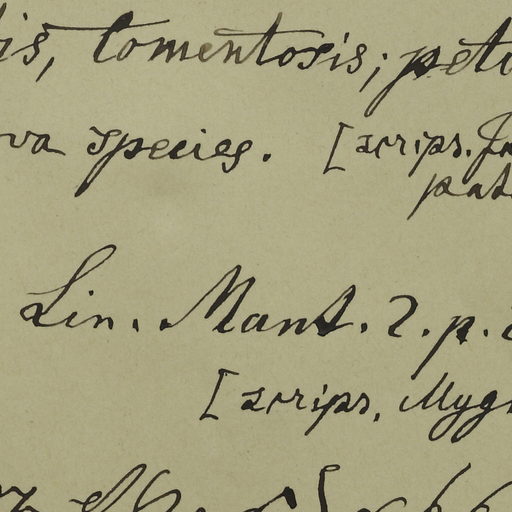 tomentosis; pet
va species. [scrips.
pat
Lin. Mant. 2. p.
[scrips, Myg